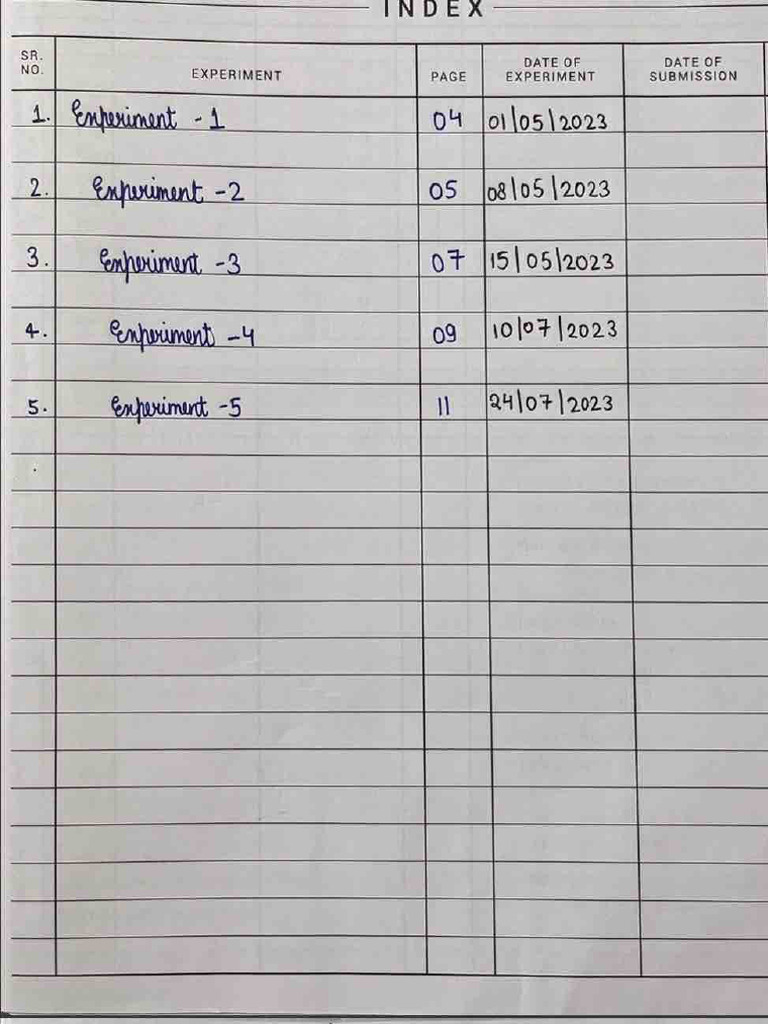 INDEX
SR. NO. EXPERIMENT PAGE DATE OF EXPERIMENT DATE OF SUBMISSION
1. Experiment - 1 04 01/05/2023
2. Experiment - 2 05 08/05/2023
3. Experiment - 3 07 15/05/2023
4. Experiment - 4 09 10/07/2023
5. Experiment - 5 11 24/07/2023